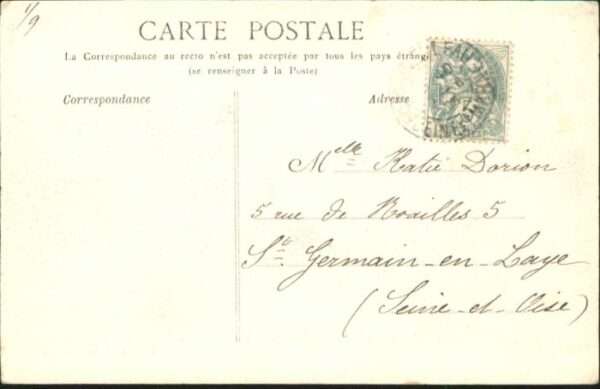 1/9
CARTE POSTALE
La Correspondance au recto n'est pas acceptée par tous les pays étrang
(se renseigner à la Poste)
Correspondance
Adresse
Melle Katie Dorion
5 rue de Noailles 5
St. Germain-en-Laye
(Seine-et-Oise)